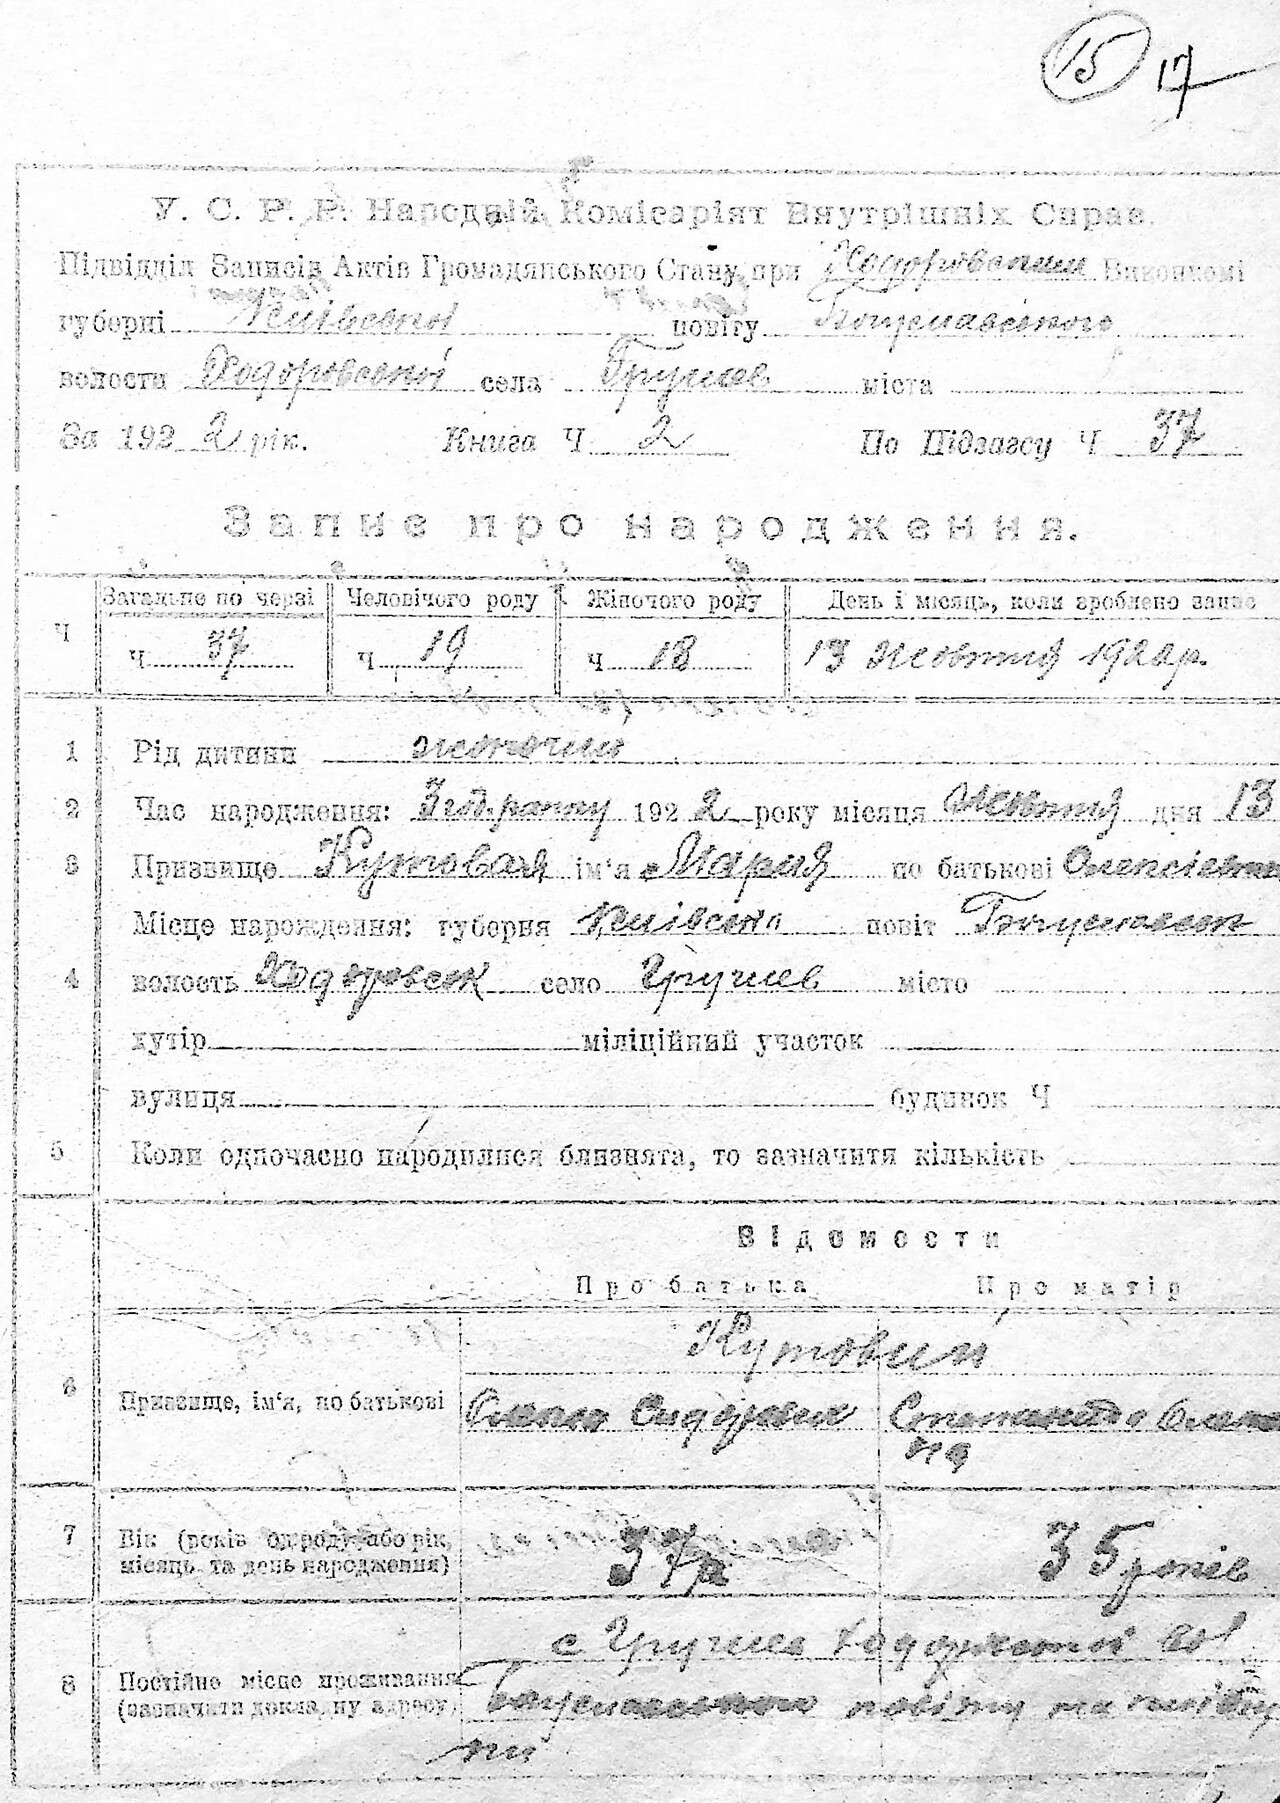 15 17
У. С. Р. Р. Народній Комісаріят Внутрішніх Справ.
Підвідділ Записів Актів Громадянського Стану при Ходоровским Виконкомі
губерні Київської повіту Богуславського
волости Ходоровської села Грушев міста
За 1922 рік. Книга Ч 2 По Підзагсу Ч 37
Запис про народження.
Ч Загальне по черзі Человічого роду Жіночого роду День і місяць, коли зроблено запис
Ч 37 Ч 19 Ч 18 13 жовтня 1922р.
1 Рід дитини жіночий
2 Час народження: 3 год. ранку 1922 року місяця Жовтня дня 13
3 Призвище Кутовая ім'я Мария по батькові
Місце нарождення: губерня Київська повіт Богуславск
4 волость Ходоровск село Грушев місто
хутір міліційний участок
вулиця будинок Ч
5 Коли одночасно народилися близнята, то зазначити кількість
Відомости
Про батька Про матір
Кутовий
6 Призвище, ім'я, по батькові Сидорович
на
7 Вік (років од роду або рік,
місяць та день народження) 35 років
с Грушев Ходоровської вол
8 Постійне місце проживання
(зазначити докладну адресу) Богуславського повіту на